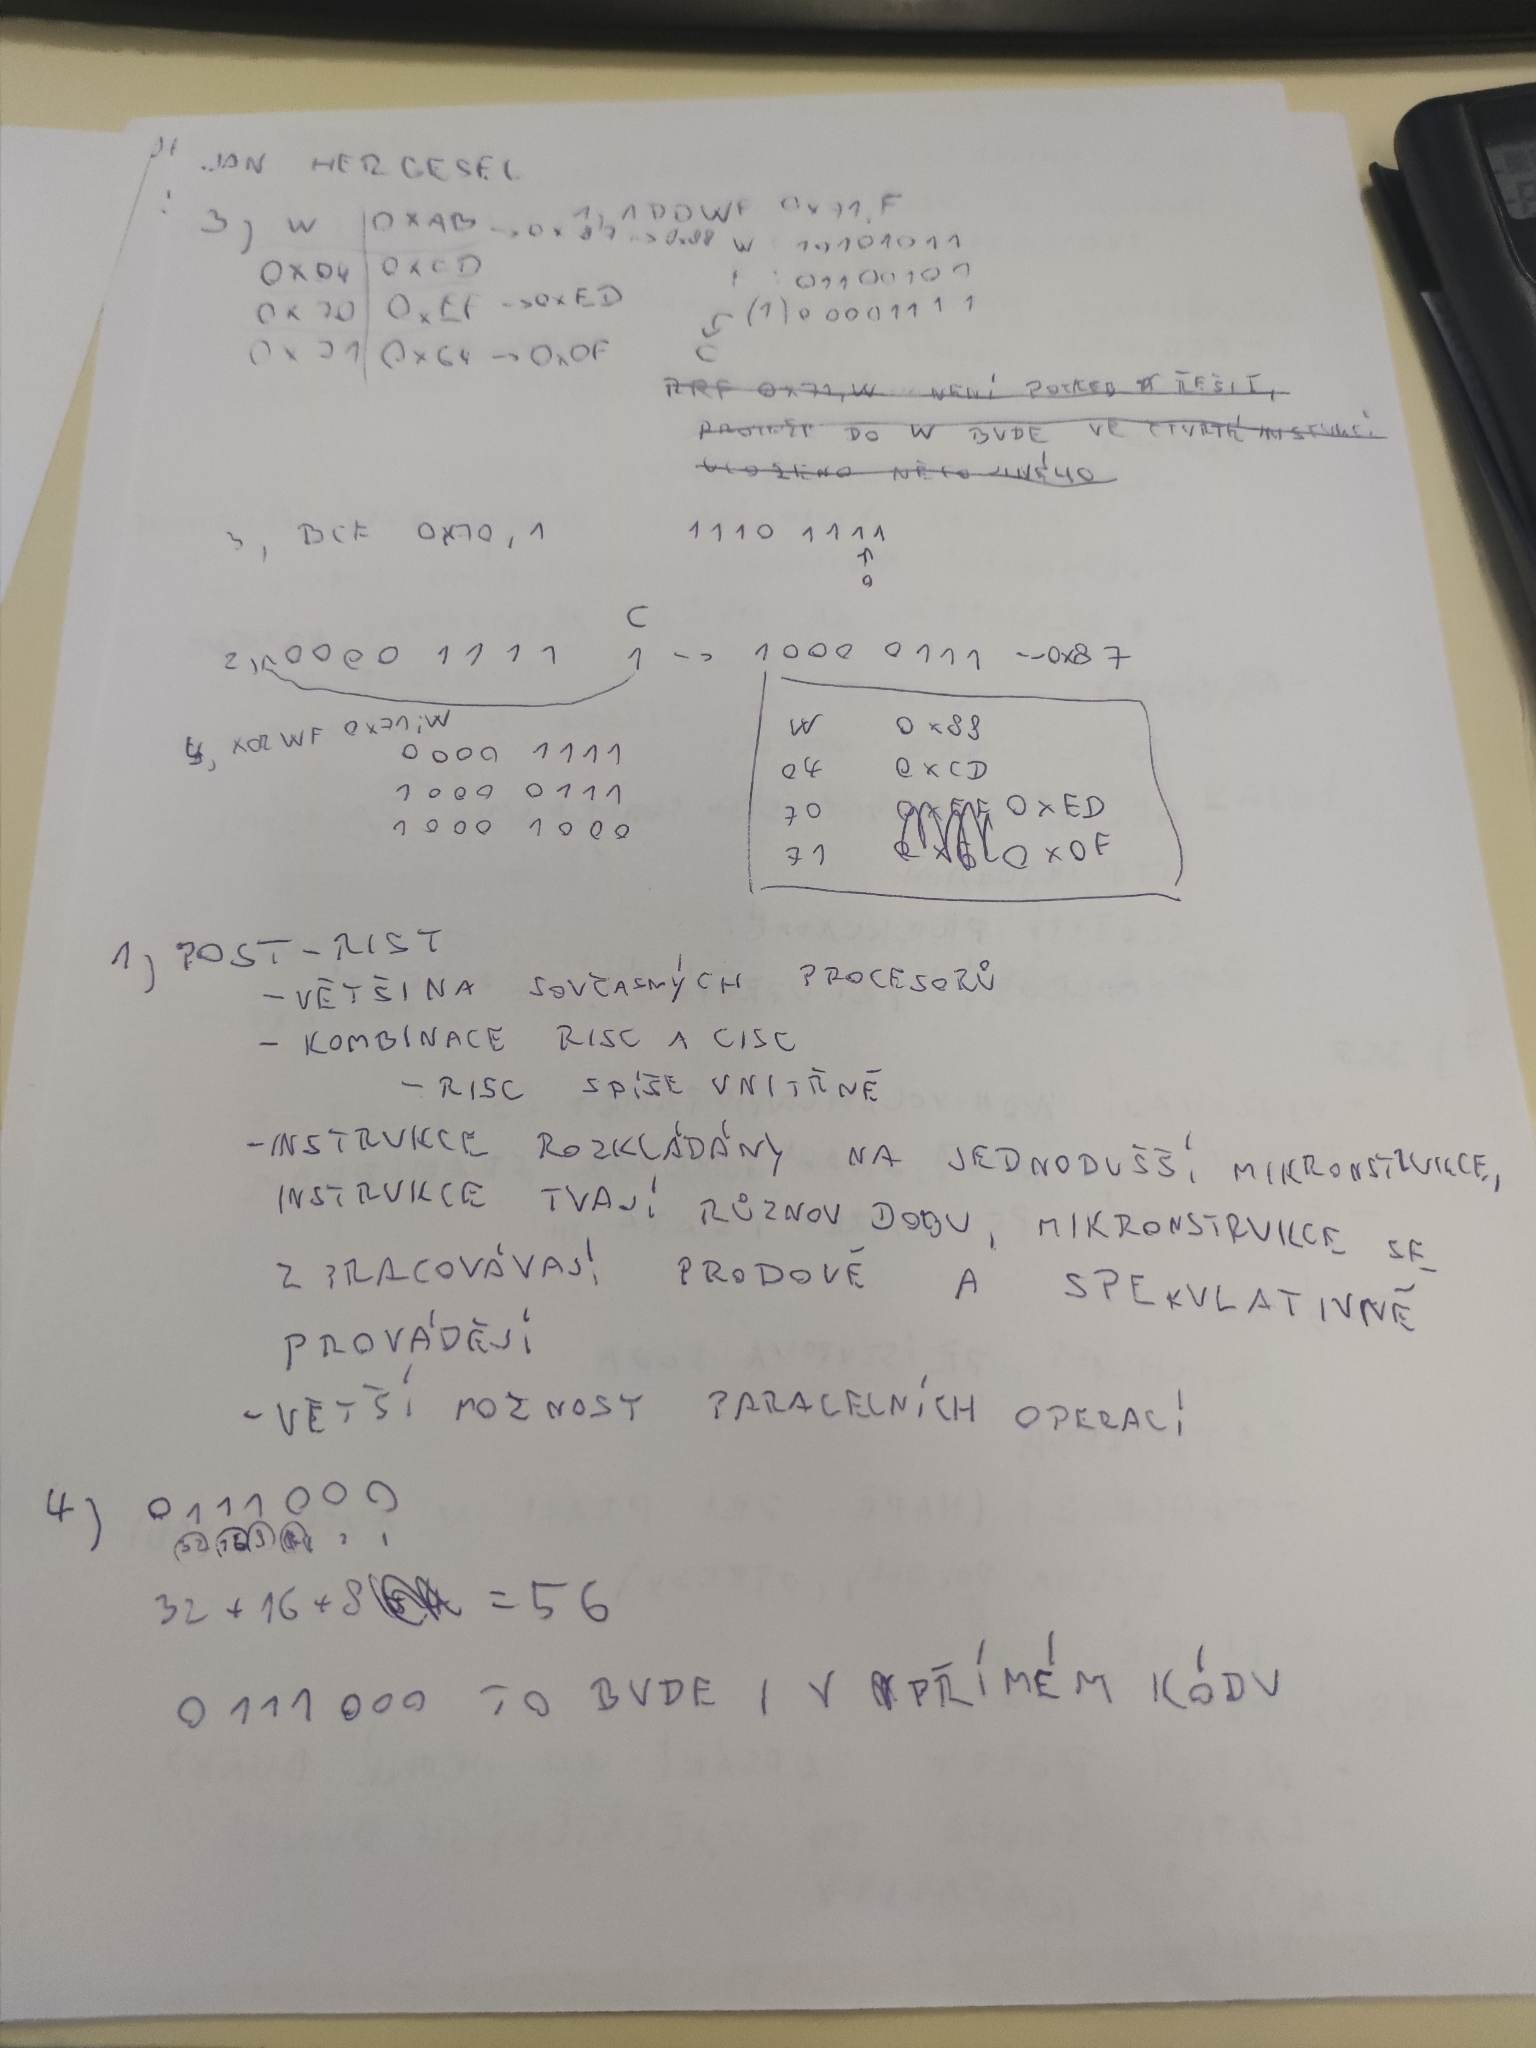 JAN HERGESEL
3) W | 0xAB → 0x87 → 0x88
0x04 | 0xCD
0x70 | 0xEF → 0xED
0x71 | 0x64 → 0x0F
1, ADDWF 0x71,F
W 10101011
01100101
(1)00001111
C
RRF 0x71,W NENÍ POTŘEB ŘEŠIT,
PROTOŽE DO W BUDE VE ČTVRTÉ INSTUKCI
VLOŽENO NĚCO JINÉHO
3, BCF 0x70,1 1110 1111
0
C
2, 0000 1111 1 → 1000 0111 → 0x87
4, XORWF 0x71,W
0000 1111
1000 0111
1000 1000
W 0x88
04 0xCD
70 0xEF 0xED
71 0x0F
1) POST-RIST
- VĚTŠINA SOUČASNÝCH PROCESORŮ
- KOMBINACE RISC A CISC
- RISC SPÍŠE VNITŘNĚ
- INSTRUKCE ROZKLÁDÁNY NA JEDNODUŠŠÍ MIKRONSTRUKCE,
INSTRUKCE TVAJÍ RŮZNOU DOBU, MIKRONSTRUKCE SE
ZPRACOVÁVAJÍ PRODOVĚ A SPEKULATIVNĚ
PROVÁDĚJÍ
- VĚTŠÍ MOŽNOST PARALELNÍCH OPERACÍ
4) 0111000
32 16 8 4 2 1
32 + 16 + 8 = 56
0111000 TO BUDE I V PŘÍMÉM KÓDU